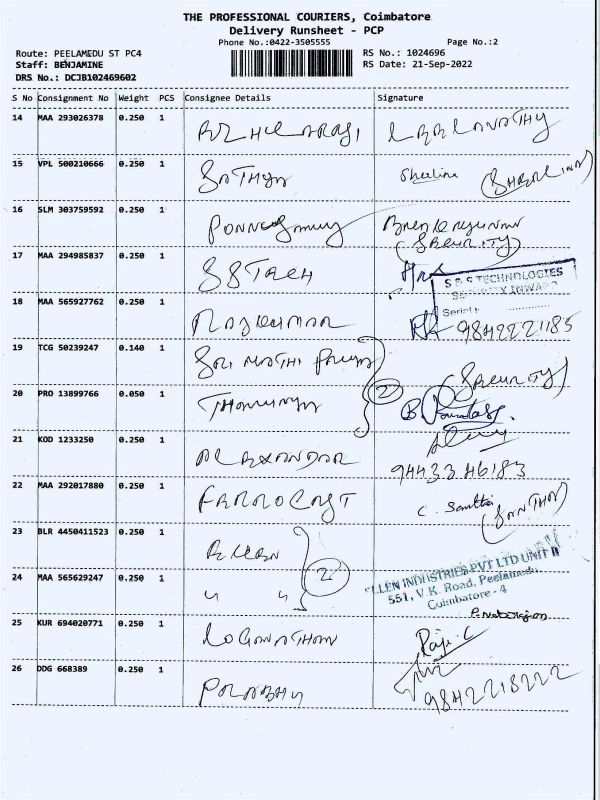 THE PROFESSIONAL COURIERS, Coimbatore
Delivery Runsheet - PCP
Phone No.:0422-3505555 Page No.:2
Route: PEELAMEDU ST PC4 RS No.: 1024696
Staff: BENJAMINE RS Date: 21-Sep-2022
DRS No.: DCJB102469602
S No Consignment No Weight PCS Consignee Details Signature
14 MAA 293026378 0.250 1
15 VPL 500210666 0.250 1 Sathya
16 SLM 303759592 0.250 1 (SECURITY)
17 MAA 294985837 0.250 1 S S Tech
S & S TECHNOLOGIES
SECURITY INWARD
18 MAA 565927762 0.250 1 RAJKUMAR 9842221185
19 TCG 50239247 0.140 1 SRI MATHI PRIYA (SECURITY)
20 PRO 13899766 0.050 1 2
21 KOD 1233250 0.250 1 ALEXANDAR 9443346183
22 MAA 292017880 0.250 1 FARROCAST (SANTHA)
23 BLR 4450411523 0.250 1 ELLEN
24 MAA 565629247 0.250 1 " " 2
LLEN INDUSTRIES PVT LTD UNIT II
551, V K. Road, Peelamedu
Coimbatore - 4
25 KUR 694020771 0.250 1 LOGANATHAN Raji. C
26 DDG 668389 0.250 1 PRABHU 9842218222